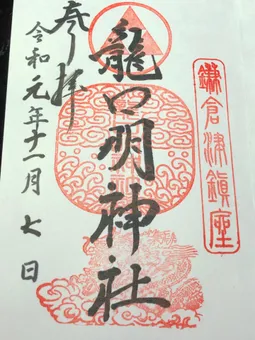 鎌倉津鎮座
龍口明神社
奉拝
令和元年十一月七日